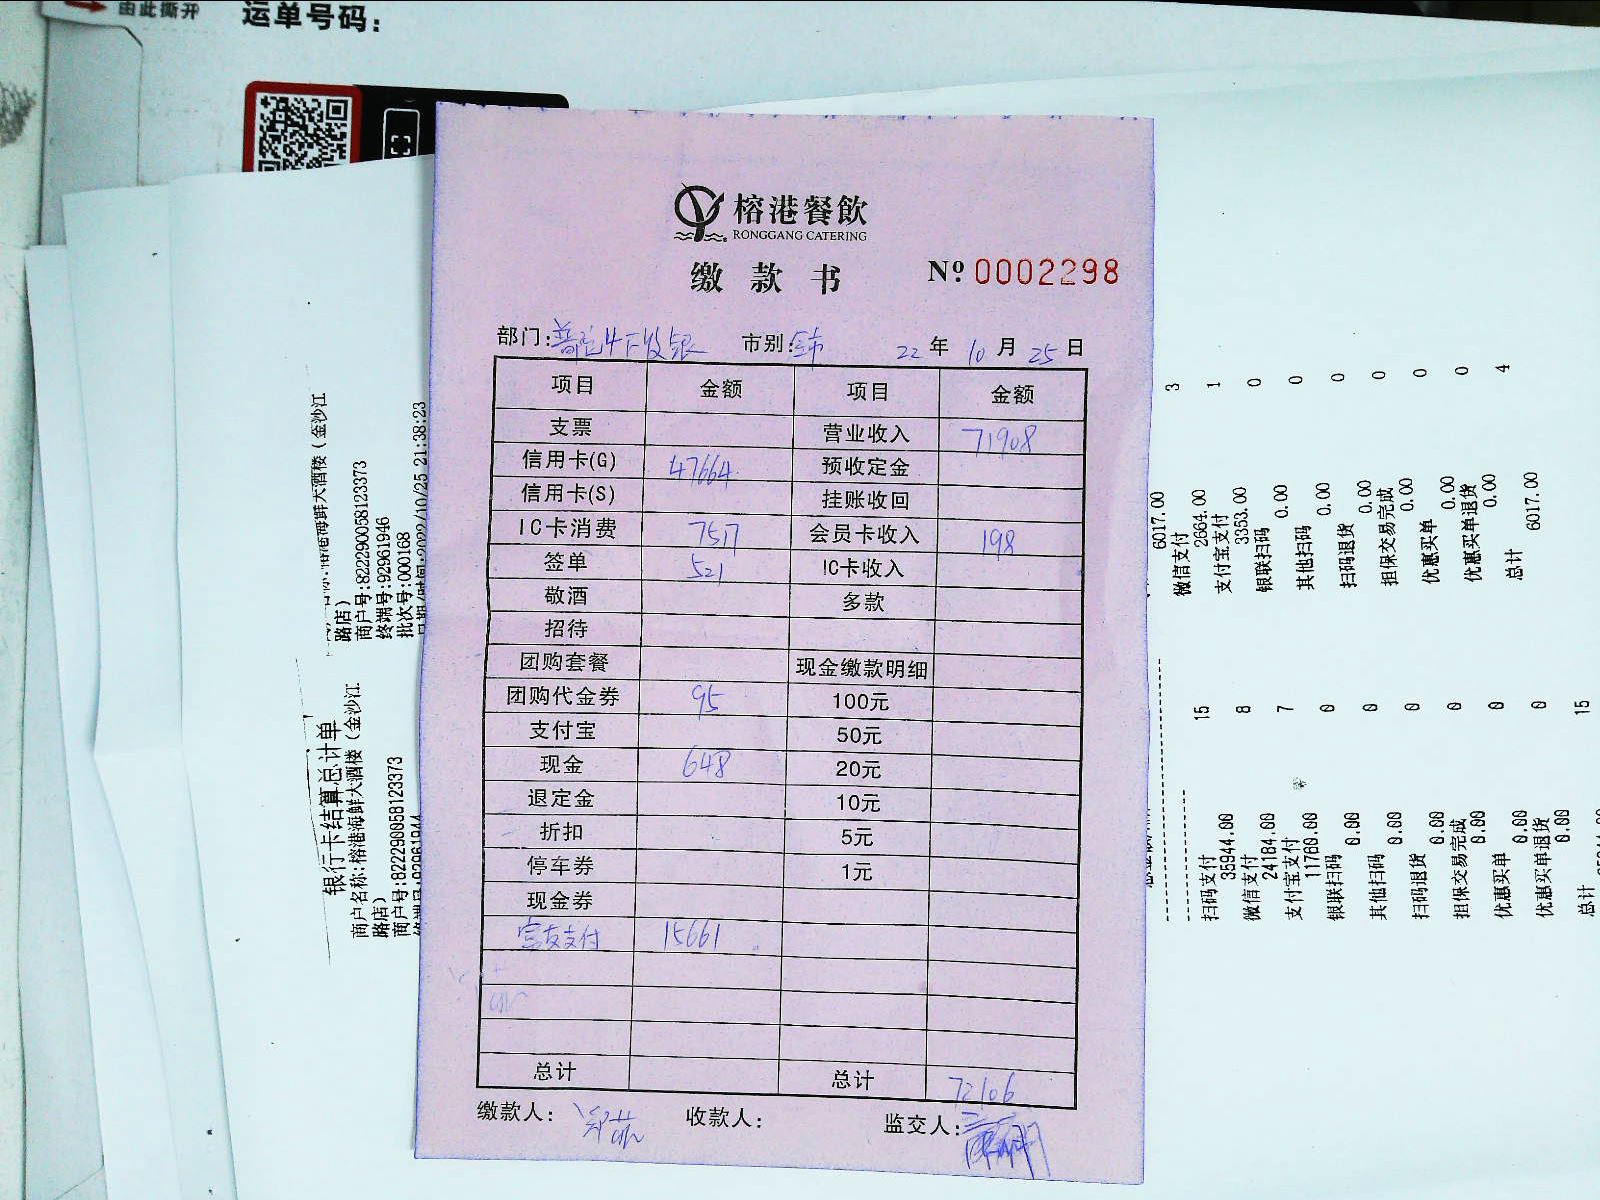 由此撕开
运单号码:
榕港餐飲
RONGGANG CATERING
缴款书
Nº 0002298
部门: 普陀4F收银 市别: 全市 22 年 10 月 25 日
项目 金额 项目 金额
支票 营业收入 71908
信用卡(G) 47664 预收定金
信用卡(S) 挂账收回
IC卡消费 7517 会员卡收入 198
签单 521 IC卡收入
敬酒 多款
招待
团购套餐 现金缴款明细
团购代金券 95 100元
支付宝 50元
现金 648 20元
退定金 10元
折扣 5元
停车券 1元
现金券
宝友支付 15661
总计 总计 72106
缴款人: 收款人: 监交人:
榕港海鲜大酒楼(金沙江
路店)
商户号:822290058123373
终端号:92961946
批次号:000168
日期/时间:2022/10/25 21:38:23
银行卡结算总计单
商户名称:榕港海鲜大酒楼(金沙江
路店)
商户号:822290058123373
终端号:92961944
6017.00 3
微信支付
2664.00 1
支付宝支付
3353.00 0
银联扫码
0.00 0
其他扫码
0.00 0
扫码退货
0.00 0
担保交易完成
0.00 0
优惠买单
0.00 0
优惠买单退货
0.00 4
总计
6017.00
扫码支付 15
35944.00
微信支付 8
24184.00
支付宝支付 7
11760.00
银联扫码 0
0.00
其他扫码 0
0.00
扫码退货 0
0.00
担保交易完成 0
0.00
优惠买单 0
0.00
优惠买单退货 0
0.00
总计 15